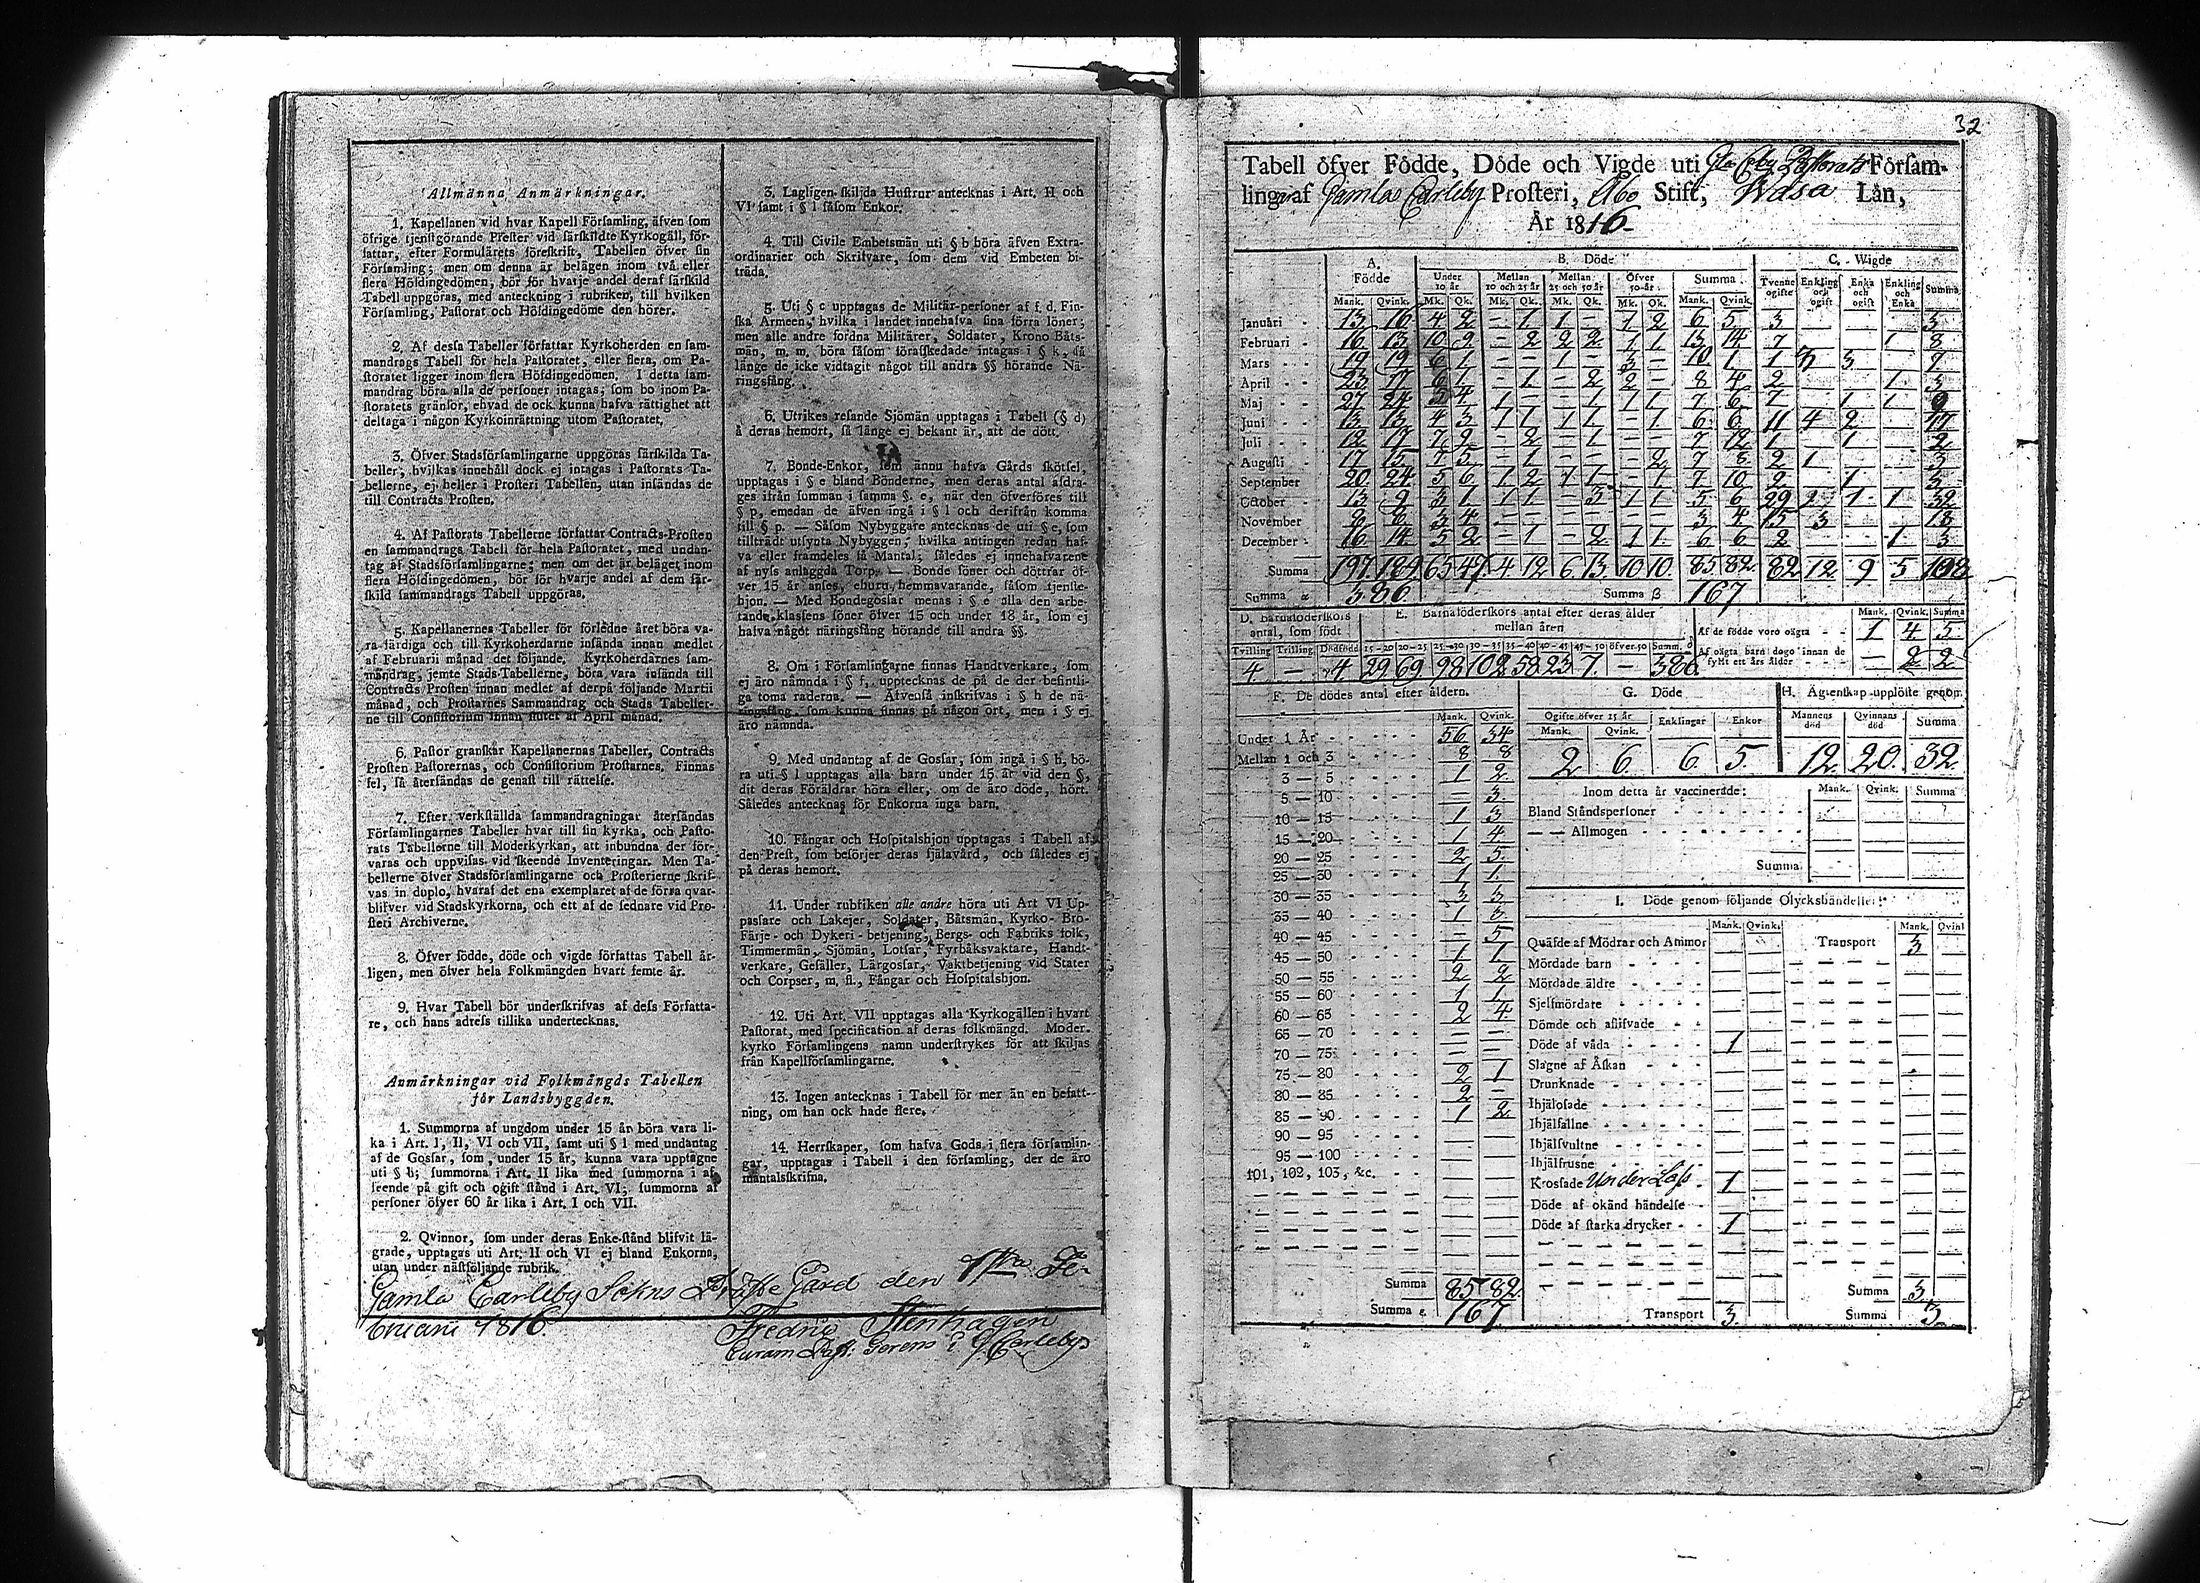 Allmänna Anmärkningar.
1. Kapellanen vid hvar Kapell Församling, äfven som
öfrige tjenstgörande Prester vid särskildte Kyrkogäll, för-
fattar, efter Formulärets föreskrift, Tabellen öfver sin
Församling; men om denna är belägen inom två eller
flera Höfdingedömen, bör för hvarje andel deraf särskild
Tabell uppgöras, med anteckning i rubriken, till hvilken
Församling, Pastorat och Höfdingedöme den hörer.
2. Af dessa Tabeller författar Kyrkoherden en sam-
mandrags Tabell för hela Pastoratet, eller flera, om Pa-
storatet ligger inom flera Höfdingedömen. I detta sam-
mandrag böra alla de personer intagas, som bo inom Pa-
storatets gränsor, ehvad de ock kunna hafva rättighet att
deltaga i någon Kyrkoinrättning utom Pastoratet.
3. Öfver Stadsförsamlingarne uppgöras särskilda Ta-
beller, hvilkas innehåll dock ej intagas i Pastorats Ta-
bellerne, ej heller i Prosteri Tabellen, utan insändas de
till Contracts Prosten.
4. Af Pastorats Tabellerne författar Contracts-Prosten
en sammandrags Tabell för hela Pastoratet, med undan-
tag af Stadsförsamlingarne; men om det är beläget inom
flera Höfdingedömen, bör för hvarje andel af dem sär-
skild sammandrags Tabell uppgöras.
5. Kapellanernes Tabeller för förledne året böra va-
ra färdiga och till Kyrkoherdarne insända innan medlet
af Februarii månad det följande. Kyrkoherdarnes sam-
mandrag, jemte Stads-Tabellerne, böra vara insända till
Contracts Prosten innan medlet af derpå följande Martii
månad, och Prostarnes Sammandrag och Stads Tabeller-
ne till Consistorium innan slutet af April månad.
6. Pastor granskar Kapellanernas Tabeller, Contracts
Prosten Pastorernas, och Consistorium Prostarnes. Finnas
fel, så återsändas de genast till rättelse.
7. Efter verkställda sammandragningar återsändas
Församlingarnes Tabeller hvar till sin kyrka, och Pasto-
rats Tabellerne till Moderkyrkan, att inbundna der för-
varas och uppvisas vid skeende Inventeringar. Men Ta-
bellerne öfver Stadsförsamlingarne och Prosterierne skrif-
vas in duplo, hvaraf det ena exemplaret af de förra qvar-
blifver vid Stadskyrkorna, och ett af de sednare vid Pro-
steri Archiverne.
8. Öfver födde, döde och vigde författas Tabell år-
ligen, men öfver hela Folkmängden hvart femte år.
9. Hvar Tabell bör underskrifvas af dess Författa-
re, och hans adress tillika undertecknas.
Anmärkningar vid Folkmängds Tabellen
för Landsbyggden.
1. Summorna af ungdom under 15 år böra vara li-
ka i Art. I, II, VI och VII, samt uti § l med undantag
af de Gossar, som under 15 år, kunna vara upptagne
uti § b; summorna i Art. II lika med summorna i af-
seende på gift och ogift stånd i Art. VI; summorna af
personer öfver 60 år lika i Art. I och VII.
2. Qvinnor, som under deras Enke-stånd blifvit lä-
grade, upptagas uti Art. II och VI ej bland Enkorna,
utan under nästföljande rubrik.
3. Lagligen skiljda Hustrur antecknas i Art. II och
VI samt i § l såsom Enkor.
4. Till Civile Embetsmän uti § b böra äfven Extra-
ordinarier och Skrifvare, som dem vid Embeten bi-
träda.
5. Uti § c upptagas de Militär-personer af f. d. Fin-
ska Armeen, hvilka i landet innehafva sina förra löner;
men alle andre fordna Militärer, Soldater, Krono Båts-
män, m. m. böra såsom förafskedade intagas i § k, så
länge de icke vidtagit något till andra §§ hörande Nä-
ringsfång.
6. Utrikes resande Sjömän upptagas i Tabell (§ d)
å deras hemort, så länge ej bekant är, att de dött.
7. Bonde-Enkor, som ännu hafva Gårds skötsel,
upptagas i § e bland Bönderne, men deras antal afdra-
ges ifrån summan i samma §. e, när den öfverföres till
§ p, emedan de äfven ingå i § l och derifrån komma
till § p. — Såsom Nybyggare antecknas de uti § e, som
tillträdt utsynta Nybyggen, hvilka antingen redan haf-
va eller framdeles få Mantal; således ej innehafvarene
af nyss anlaggda Torp. — Bonde söner och döttrar öf-
ver 15 år anses, ehuru hemmavarande, såsom tjenste-
hjon. — Med Bondegossar menas i § e alla den arbe-
tande klassens söner öfver 15 och under 18 år, som ej
hafva något näringsfång hörande till andra §§.
8. Om i Församlingarne finnas Handtverkare, som
ej äro nämnda i § f, upptecknas de på de der befintli-
ga toma raderna. — Äfvenså inskrifvas i § h de nä-
ringsfång, som kunna finnas på någon ort, men i § ej
äro nämnda.
9. Med undantag af de Gossar, som ingå i § b, bö-
ra uti § l upptagas alla barn under 15 år vid den §,
dit deras Föräldrar höra eller, om de äro döde, hört.
Således antecknas för Enkorna inga barn.
10. Fångar och Hospitalshjon upptagas i Tabell af
den Prest, som besörjer deras själavård, och således ej
på deras hemort.
11. Under rubriken alle andre höra uti Art VI Up-
passare och Lakejer, Soldater, Båtsmän, Kyrko- Bro-
Färje- och Dykeri-betjening, Bergs- och Fabriks folk,
Timmermän, Sjömän, Lotsar, Fyrbåksvaktare, Handt-
verkare, Gesäller, Lärgossar, Vaktbetjening vid Stater
och Corpser, m. fl., Fångar och Hospitalshjon.
12. Uti Art. VII upptagas alla Kyrkogällen i hvart
Pastorat, med specification af deras folkmängd. Moder-
kyrko Församlingens namn understrykes för att skiljas
från Kapellförsamlingarne.
13. Ingen antecknas i Tabell för mer än en befatt-
ning, om han ock hade flere.
14. Herrskaper, som hafva Gods i flera församlin-
gar, upptagas i Tabell i den församling, der de äro
mantalsskrifna.
Gamla Carleby Sokns Präste Gård den 1sta Fe-
bruarii 1816.
Fredric Stenhagen
Curam Past: Gerens i G Carleby
32
Tabell öfver Födde, Döde och Vigde uti Gla Cby Pastorats Försam-
lingar af Gamla Carleby Prosteri, Åbo Stift, Wasa Län,
År 1816
A. Födde B. Döde C. Wigde
Under 10 år Mellan 10 och 25 år Mellan 25 och 50 år Öfver 50 år Summa Tvenne ogifte Enkling och ogift Enka och ogift Enkling och Enka Summa
Mank. Qvink. Mk. Qk. Mk. Qk. Mk. Qk. Mk. Qk. Mank. Qvink.
Januari 13 16 4 2 – 1 1 – 1 2 6 5 3 – – – 3
Februari 16 13 10 9 – 2 2 2 1 1 13 14 7 – – 1 8
Mars 19 19 6 1 – – 1 – 3 – 10 1 1 3 3 7
April 23 17 6 1 – 1 – 2 2 – 8 4 2 1 3
Maj 27 24 5 4 1 – – 1 1 1 7 6 7 1 1 9
Juni 13 13 4 3 1 1 1 1 – 1 6 6 11 4 2 17
Juli 12 17 7 9 – 2 – 1 – – 7 12 1 1 2
Augusti 17 15 7 5 – 1 – – – 2 7 8 2 1 3
September 20 24 5 6 1 2 1 1 – 1 7 10 2 1 3
October 13 9 3 1 1 1 – 3 1 1 5 6 29 2 1 1 32
November 8 8 3 4 – – – – – – 3 4 15 3 18
December 16 14 5 2 – 1 – 2 1 1 6 6 2 1 3
Summa 197 189 65 47 4 12 6 13 10 10 85 82 82 12 9 5 108
Summa α 386 Summa β 167
D. Barnaföderskors antal, som födt
E. Barnaföderskors antal efter deras ålder mellan åren
Tvilling Trilling Dödfödde 15-20 20-25 25-30 30-35 35-40 40-45 45-50 öfver 50 Summ. δ
4 – 4 29 69 98 102 58 23 7 – 386
Mank. Qvink. Summa
Af de födde voro oägta 1 4 5
Af oägta barn dogo innan de fyllt ett års ålder – 2 2
F. De dödes antal efter åldern.
Mank. Qvink.
Under 1 År 56 34
Mellan 1 och 3 8 8
3 — 5 1 2
5 — 10 – 3
10 — 15 1 3
15 — 20 1 4
20 — 25 2 5
25 — 30 1 1
30 — 35 3 3
35 — 40 1 3
40 — 45 – 5
45 — 50 1 1
50 — 55 2 2
55 — 60 1 1
60 — 65 2 4
65 — 70 – –
70 — 75 – –
75 — 80 2 1
80 — 85 2 –
85 — 90 1 2
90 — 95 – –
95 — 100 – –
101, 102, 103, &c. – –
Summa 85 82
Summa ε. 167
G. Döde
Ogifte öfver 15 år Enklingar Enkor
Mank. Qvink.
2 6 6 5
H. Ägtenskap upplöste genom
Mannens död Qvinnans död Summa
12 20 32
Inom detta år vaccinerade: Mank. Qvink. Summa
Bland Ståndspersoner
— — Allmogen
Summa
I. Döde genom följande Olyckshändelser:
Mank. Qvink. Mank. Qvink
Qväfde af Mödrar och Ammor Transport 3
Mördade barn
Mördade äldre
Sjelfmördare
Dömde och aflifvade
Döde af våda 1
Slagne af Åskan
Drunknade
Ihjälosade
Ihjälfallne
Ihjälsvultne
Ihjälfrusne
Krossade Under Lass 1
Döde af okänd händelse
Döde af starka drycker 1
Summa 3
Transport 3 Summa 3